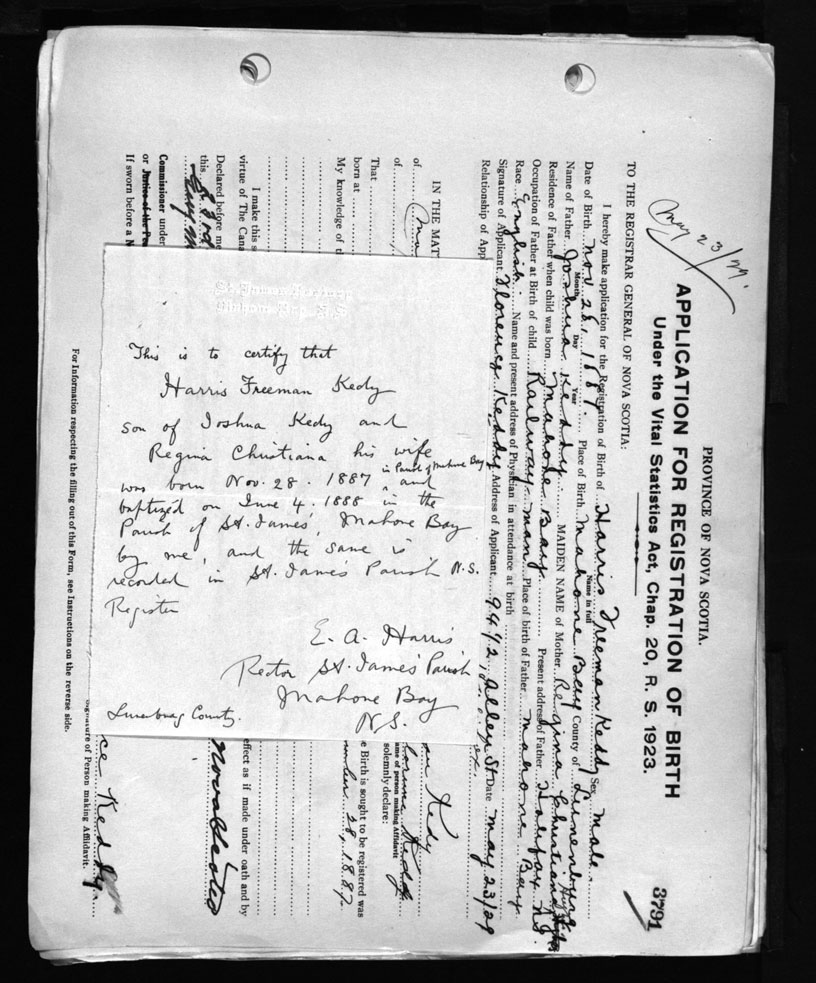 May 23/29.
PROVINCE OF NOVA SCOTIA.
APPLICATION FOR REGISTRATION OF BIRTH
Under the Vital Statistics Act, Chap. 20, R. S. 1923.
3791
TO THE REGISTRAR GENERAL OF NOVA SCOTIA:
I hereby make application for the Registration of Birth of Harris Freeman Keddy Sex Male
Name in full
Date of Birth Nov 28, 1887. Place of Birth Mahone Bay County of Lunenburg
Month Day Year
Name of Father Joshua Keddy MAIDEN NAME of Mother Regina Christiana
Residence of Father when child was born Mahone Bay Present address of Father Halifax N.S.
Occupation of Father at Birth of child Railway man Place of birth of Father Mahone Bay
Race English Name and present address of Physician in attendance at birth
Signature of Applicant Florence Keddy Address of Applicant 94 1/2 Allen St. Date May 23/29
Relationship of Appl
IN THE MATT
of
of
That
born at
My knowledge of t
I make this s
virtue of The Cana
Declared before me
this 23rd
Commissioner under
or Justice of the Pea
If sworn before a N
Kedy
ame of person making Affidavit
solemnly declare:
e Birth is sought to be registered was
mber 28, 1887
effect as if made under oath and by
Nova Scotia
ce Keddy
Signature of Person making Affidavit.
For Information respecting the filling out of this Form, see Instructions on the reverse side.
This is to certify that
Harris Freeman Kedy
son of Joshua Kedy and
Regina Christiana his wife
was born Nov. 28. 1887 in Parish of Mahone Bay and
baptized on June 4. 1888 in the
Parish of St. James', Mahone Bay
by me, and the same is
recorded in St. James Parish N.S.
Register
E. A. Harris
Rector St. James Parish
Mahone Bay
N.S.
Lunenburg County.